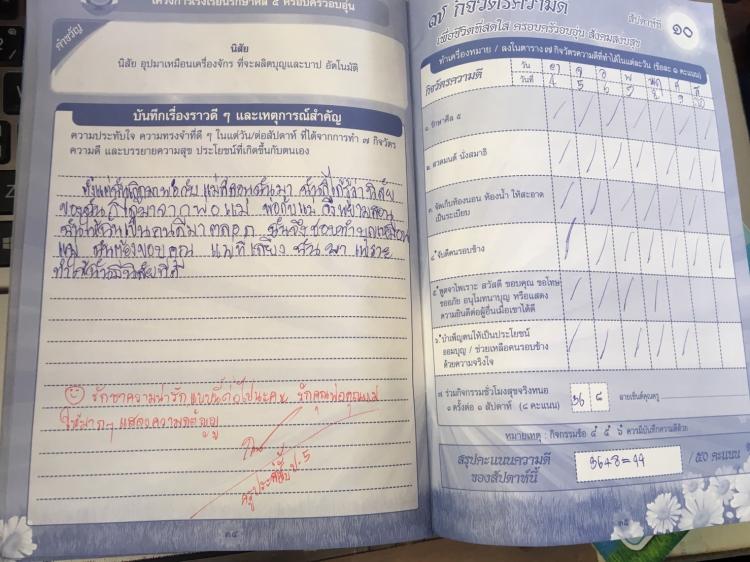 โครงการโรงเรียนรักษาศีล ๕ ครอบครัวอบอุ่น
คำขวัญ
นิสัย
นิสัย อุปมาเหมือนเครื่องจักร ที่จะผลิตบุญและบาป อัตโนมัติ
บันทึกเรื่องราวดี ๆ และเหตุการณ์สำคัญ
ความประทับใจ ความทรงจำที่ดี ๆ ในแต่วัน/ต่อสัปดาห์ ที่ได้จากการทำ ๗ กิจวัตร
ความดี และบรรยายความสุข ประโยชน์ที่เกิดขึ้นกับตนเอง
พ่อกับแม่
ของฉันได้มาจากพ่อแม่ พ่อกับแม่
ฉันให้ฉันเป็นคนดีมาตลอด ฉันจึงชอบทำบุญเหมือน
แม่ ฉันต้องขอบคุณ แม่ที่เลี้ยง ฉัน มา เพราะ
ทำให้ฉันมีนิสัยที่ดี
รักษาความน่ารักแบบนี้ต่อไปนะคะ รักคุณพ่อคุณแม่
ให้มากๆ แสดงความกตัญญู
ครูประจำชั้น ป.5
๓๔
๗ กิจวัตรความดี
เพื่อชีวิตที่สดใส ครอบครัวอบอุ่น สังคมสงบสุข
สัปดาห์ที่ ๑๐
ทำเครื่องหมาย / ลงในตาราง ๗ กิจวัตรความดีที่ทำได้ในแต่ละวัน (ข้อละ ๑ คะแนน)
กิจวัตรความดี
วัน อา จ อ พ พฤ ศ ส
วันที่ 4 5 6
๑. รักษาศีล ๕
๒. สวดมนต์ นั่งสมาธิ
๓. จัดเก็บห้องนอน ห้องน้ำ ให้สะอาด
เป็นระเบียบ
๔. จับดีคนรอบข้าง
๕. พูดจาไพเราะ สวัสดี ขอบคุณ ขอโทษ
ขออภัย อนุโมทนาบุญ หรือแสดง
ความยินดีต่อผู้อื่นเมื่อเขาได้ดี
๖. บำเพ็ญตนให้เป็นประโยชน์
ออมบุญ / ช่วยเหลือคนรอบข้าง
ด้วยความจริงใจ
๗. ร่วมกิจกรรมชั่วโมงสุขจริงหนอ
๑ ครั้งต่อ ๑ สัปดาห์ (๘ คะแนน)
36 ๘
ลายเซ็นต์คุณครู
หมายเหตุ : กิจกรรมข้อ ๔ ๕ ๖ ควรมีบันทึกความดีด้วย
สรุปคะแนนความดี
ของสัปดาห์นี้
36+8=44
/ ๕๐ คะแนน
๓๕